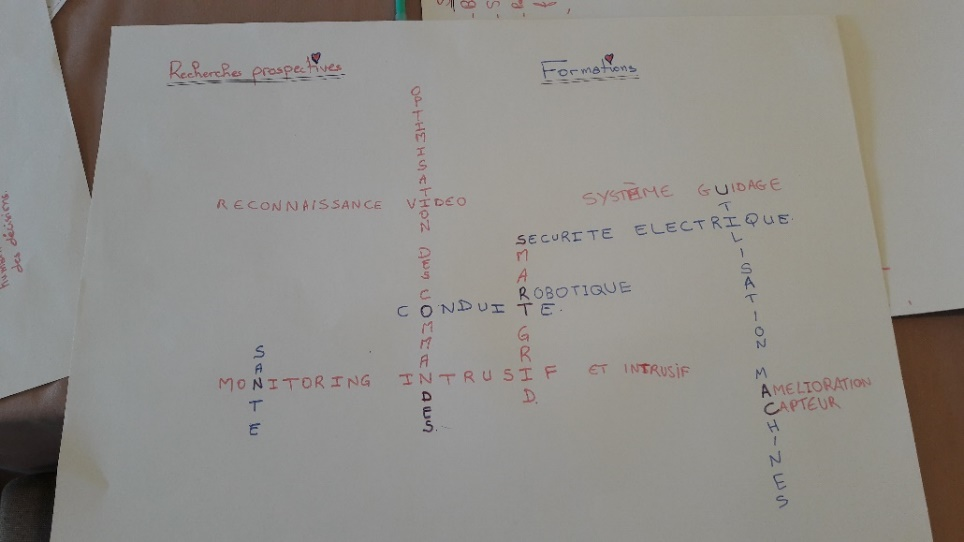 Recherches prospectives
Formations
OPTIMISATION DES COMMANDES.
RECONNAISSANCE VIDEO
SYSTÈME GUIDAGE
UTILISATION MACHINES
SECURITE ELECTRIQUE.
SMART GRID.
ROBOTIQUE
CONDUITE.
SANTE
MONITORING INTRUSIF ET INTRUSIF
AMELIORATION
CAPTEUR
des décisions.